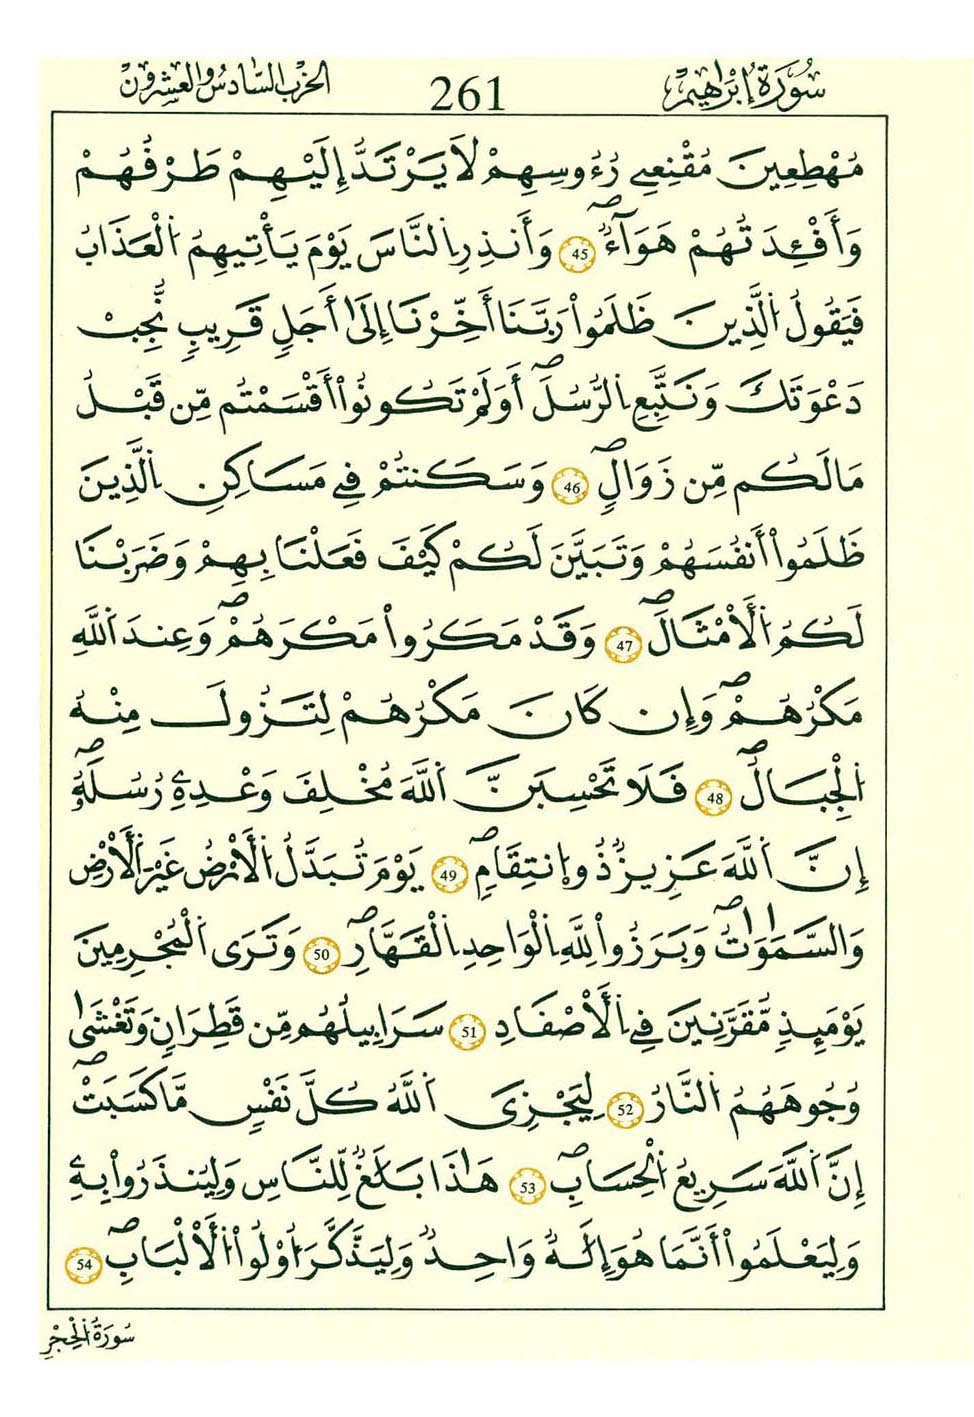 سُورَةُ إِبْرَٰهِيمَ 261 الحزب السّادس والعشرون
مُهْطِعِينَ مُقْنِعِے رُءُوسِهِمْ لَا يَرْتَدُّ إِلَيْهِمْ طَرْفُهُمْ
وَأَفْـِٕدَتُهُمْ هَوَآءٌۖ 45 وَأَنذِرِ اِلنَّاسَ يَوْمَ يَأْتِيهِمُ اُلْعَذَابُ
فَيَقُولُ اُلذِينَ ظَلَمُواْ رَبَّنَا أَخِّرْنَا إِلَىٰ أَجَلٍ قَرِيبٍ نُّجِبْ
دَعْوَتَكَ وَنَتَّبِعِ اِلرُّسُلَۖ أَوَلَمْ تَكُونُواْ أَقْسَمْتُم مِّن قَبْلُ
مَا لَكُم مِّن زَوَالٍۖ 46 وَسَكَنتُمْ فِے مَسَاكِنِ اِلذِينَ
ظَلَمُواْ أَنفُسَهُمْ وَتَبَيَّنَ لَكُمْ كَيْفَ فَعَلْنَا بِهِمْ وَضَرَبْنَا
لَكُمُ اُلْأَمْثَالَۖ 47 وَقَدْ مَكَرُواْ مَكْرَهُمْۖ وَعِندَ اَللَّهِ
مَكْرُهُمْۖ وَإِن كَانَ مَكْرُهُمْ لِتَزُولَ مِنْهُ
اُلْجِبَالُۖ 48 فَلَا تَحْسِبَنَّ اَللَّهَ مُخْلِفَ وَعْدِهِۦ رُسُلَهُۥۖ
إِنَّ اَللَّهَ عَزِيزٌ ذُو اِنتِقَامٍۖ 49 يَوْمَ تُبَدَّلُ اُلْأَرْضُ غَيْرَ اَلْأَرْضِ
وَالسَّمَٰوَٰتُۖ وَبَرَزُواْ لِلهِ اِلْوَاحِدِ اِلْقَهَّارِۖ 50 وَتَرَى اَلْمُجْرِمِينَ
يَوْمَئِذٍ مُّقَرَّنِينَ فِے اِلْأَصْفَادِ 51 سَرَابِيلُهُم مِّن قَطِرَانٍ وَتَغْشَىٰ
وُجُوهَهُمُ اُلنَّارُ 52 لِيَجْزِيَ اَللَّهُ كُلَّ نَفْسٍ مَّا كَسَبَتْۖ
إِنَّ اَللَّهَ سَرِيعُ اُلْحِسَابِۖ 53 هَٰذَا بَلَٰغٌ لِّلنَّاسِ وَلِيُنذَرُواْ بِهِۦ
وَلِيَعْلَمُواْ أَنَّمَا هُوَ إِلَٰهٌ وَاحِدٌ وَلِيَذَّكَّرَ أُوْلُواْ اُلْأَلْبَابِۖ 54
سُورَةُ اُلْحِجْرِ